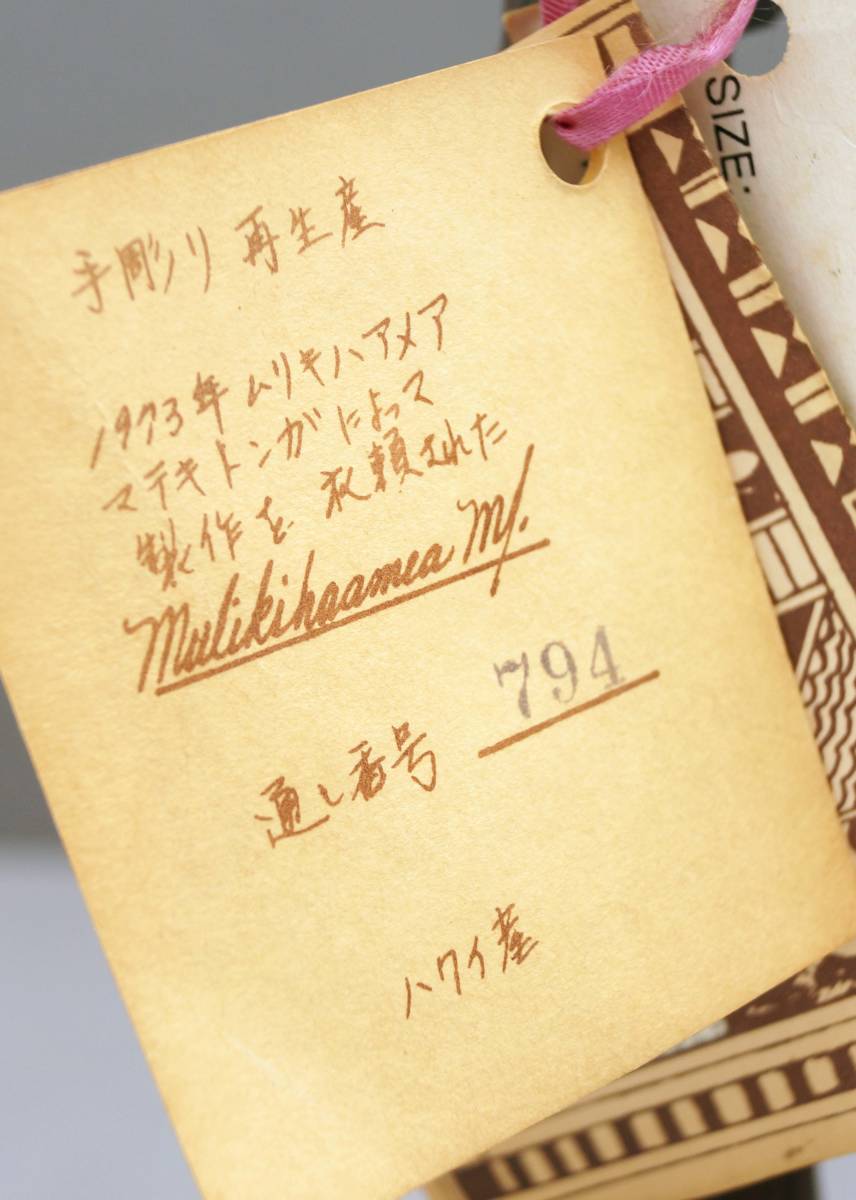 手彫ノリ 再生産
1973年 ムリキハアメア
マテキトンガによって
製作を 衣頼された
Mulikihaamea M/.
794
通し番号
ハワイ産
SIZE: